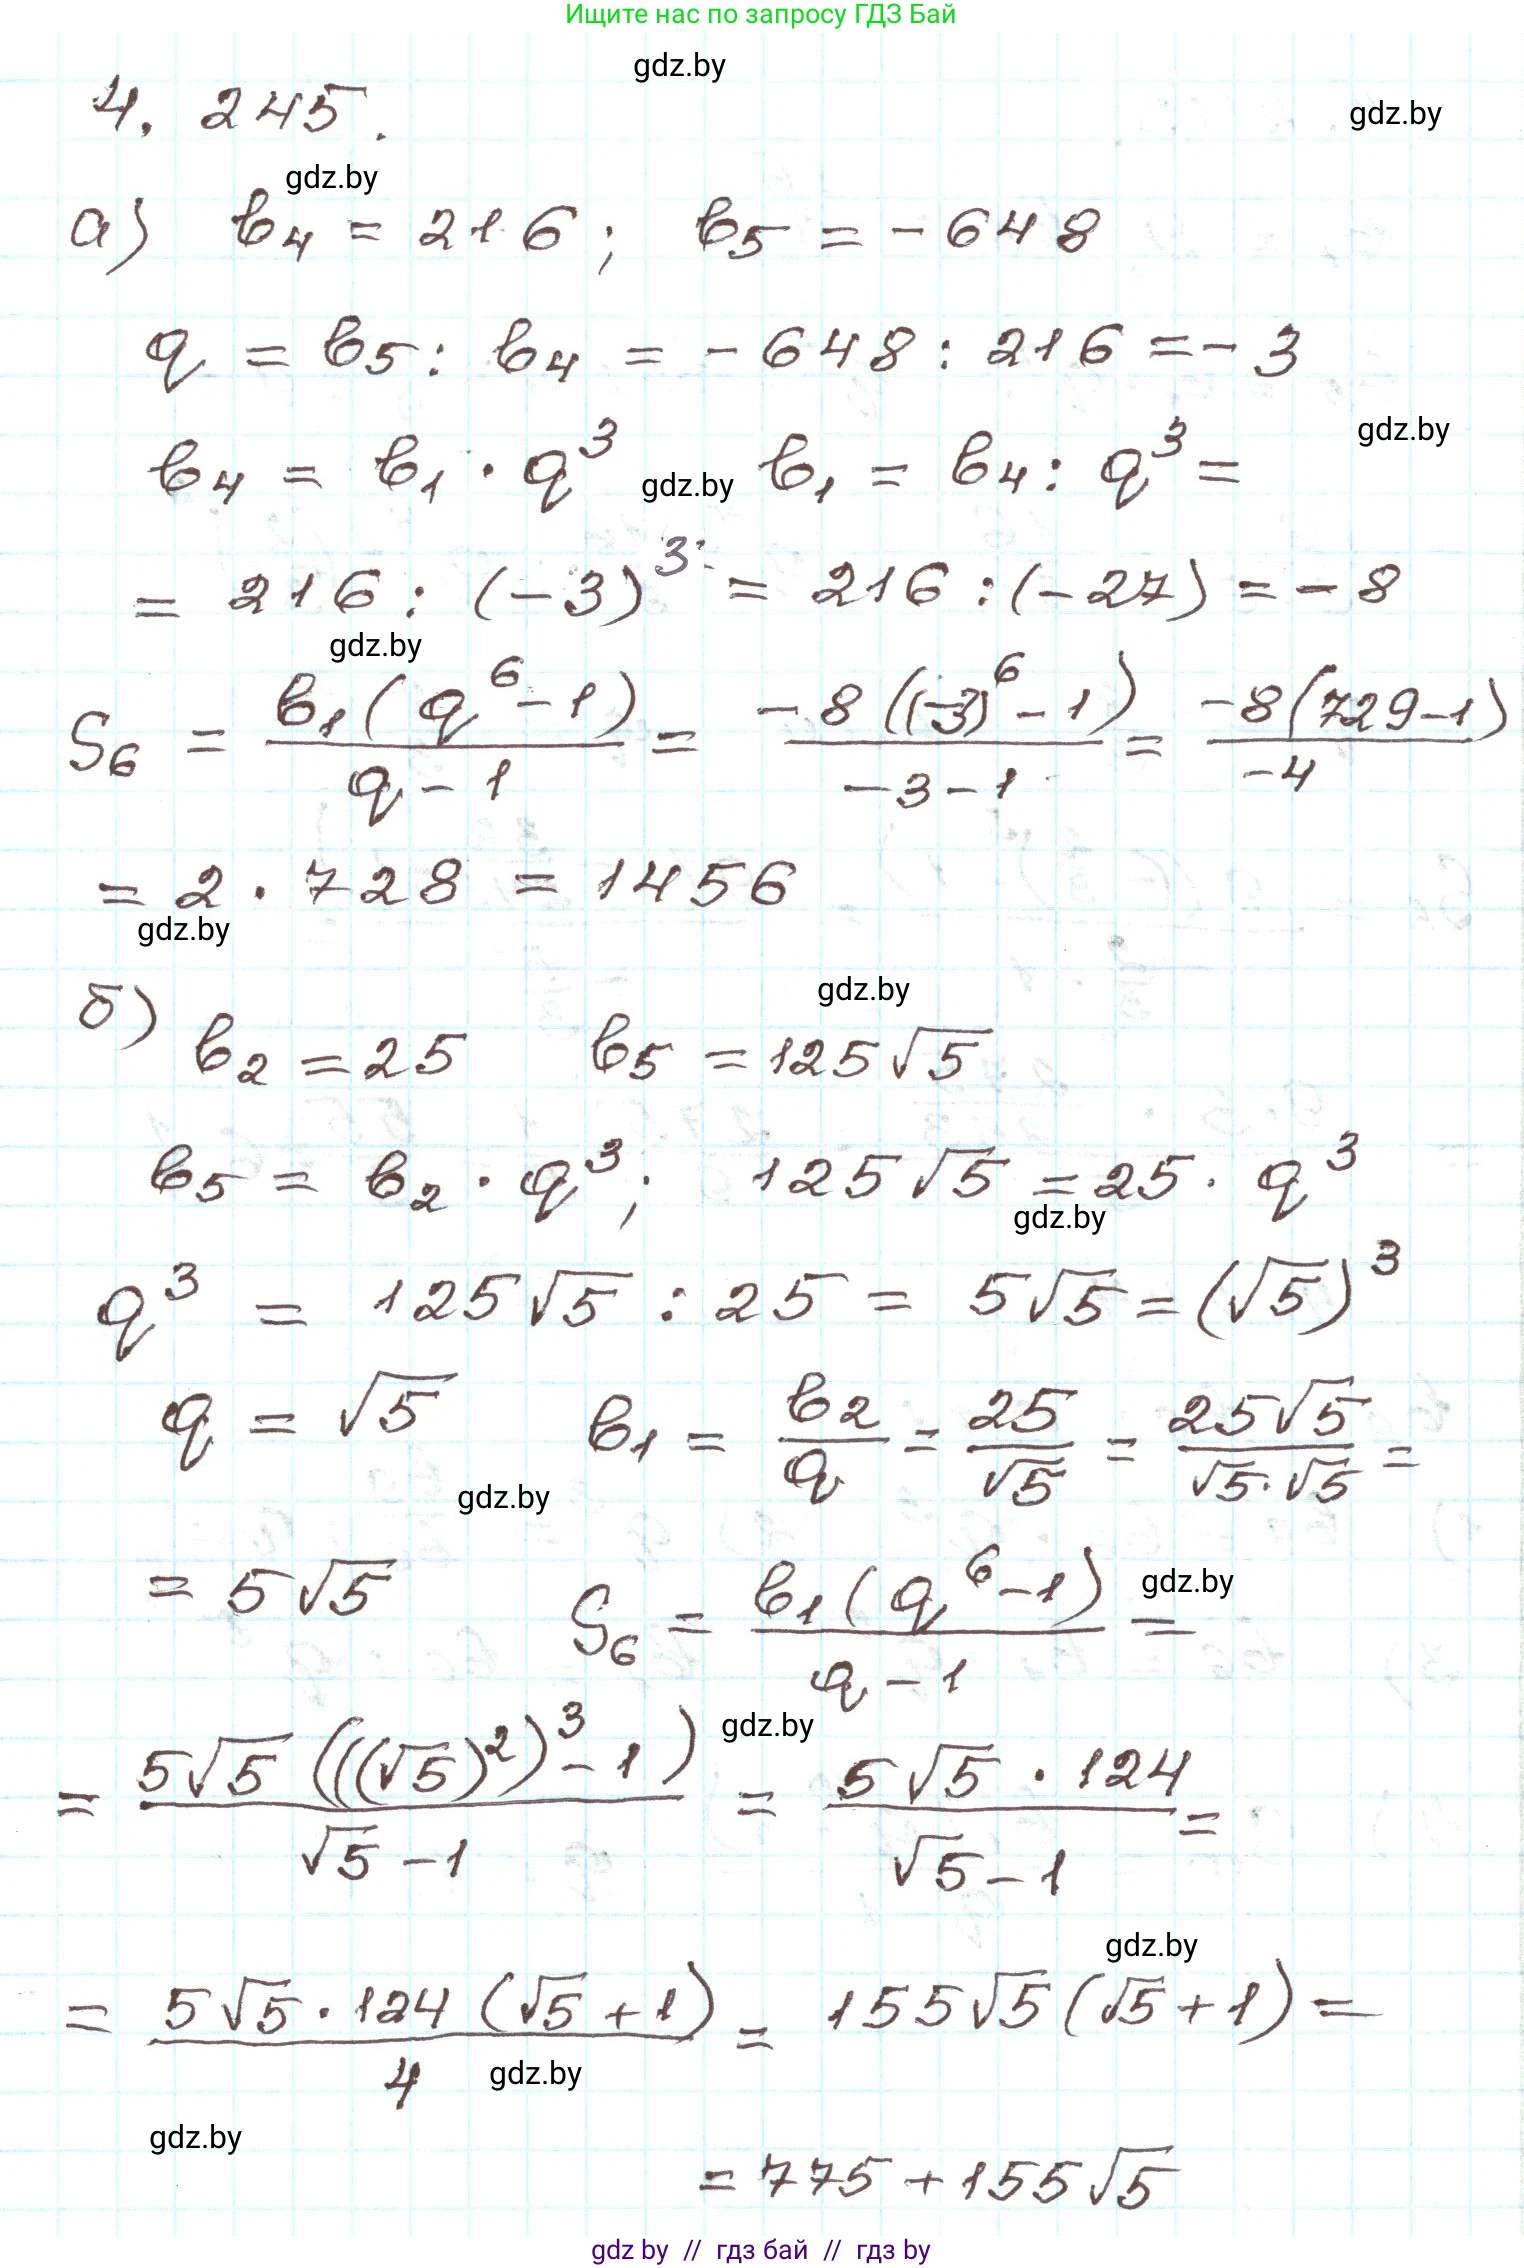 Ищите нас по запросу ГДЗ Бай
gdz.by
4. 245.
gdz.by
gdz.by
а) b₄ = 216; b₅ = -648
q = b₅ : b₄ = -648 : 216 = -3
gdz.by
b₄ = b₁ · q³ gdz.by b₁ = b₄ : q³ =
= 216 : (-3)³ = 216 : (-27) = -8
gdz.by
S₆ = b₁(q⁶-1)/(q-1) = -8((-3)⁶-1)/(-3-1) = -8(729-1)/(-4)
= 2 · 728 = 1456
gdz.by
gdz.by
б) b₂ = 25 b₅ = 125√5
b₅ = b₂ · q³; 125√5 = 25 · q³
gdz.by
q³ = 125√5 : 25 = 5√5 = (√5)³
q = √5 b₁ = b₂/q = 25/√5 = 25√5/(√5·√5) =
gdz.by
= 5√5 S₆ = b₁(q⁶-1)/(q-1) =
gdz.by
gdz.by
= 5√5(((√5)²)³-1)/(√5-1) = 5√5 · 124/(√5-1) =
gdz.by
= 5√5 · 124(√5+1)/4 = 155√5(√5+1) =
gdz.by
gdz.by
= 775 + 155√5
gdz by // гдз бай // гдз by